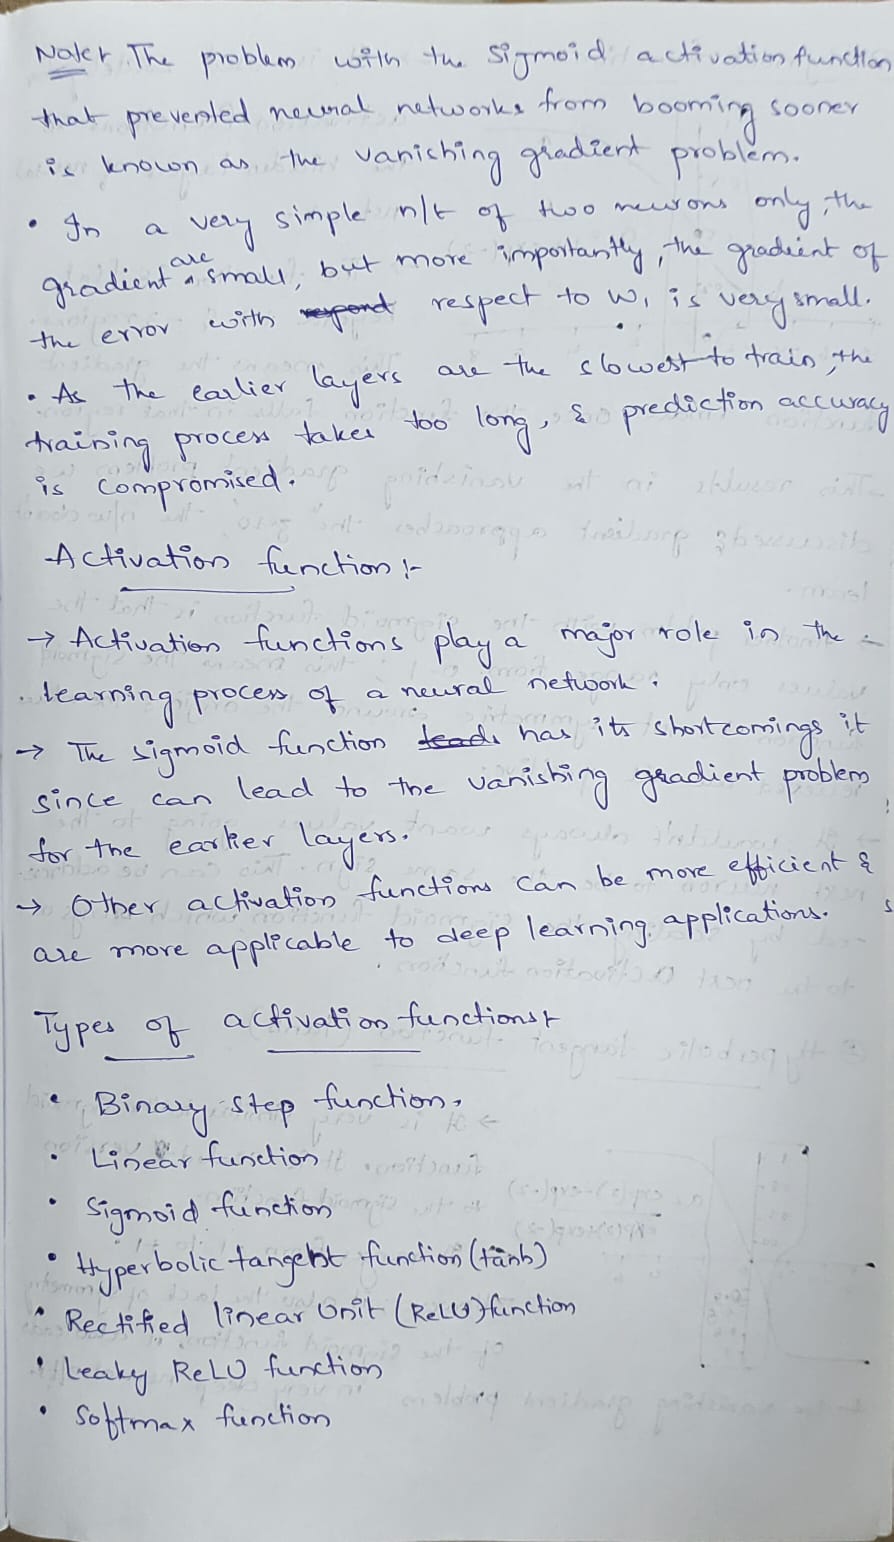 Note:- The problem with the sigmoid activation function
that prevented neural networks from booming sooner
is known as the vanishing gradient problem.
• In a very simple n/t of two neurons only, the
gradient are small, but more importantly, the gradient of
the error with respond respect to w1 is very small.
• As the earlier layers are the slowest to train, the
training process takes too long, & prediction accuracy
is compromised.
Activation function :-
→ Activation functions play a major role in the
learning process of a neural network.
→ The sigmoid function leads has its shortcomings it
since can lead to the vanishing gradient problem
for the earlier layers.
→ Other activation functions can be more efficient &
are more applicable to deep learning applications.
Types of activation functions:-
• Binary step function.
• Linear function
• Sigmoid function
• Hyperbolic tangent function (tanh)
• Rectified linear Unit (ReLU) function
• Leaky ReLU function
• Softmax function